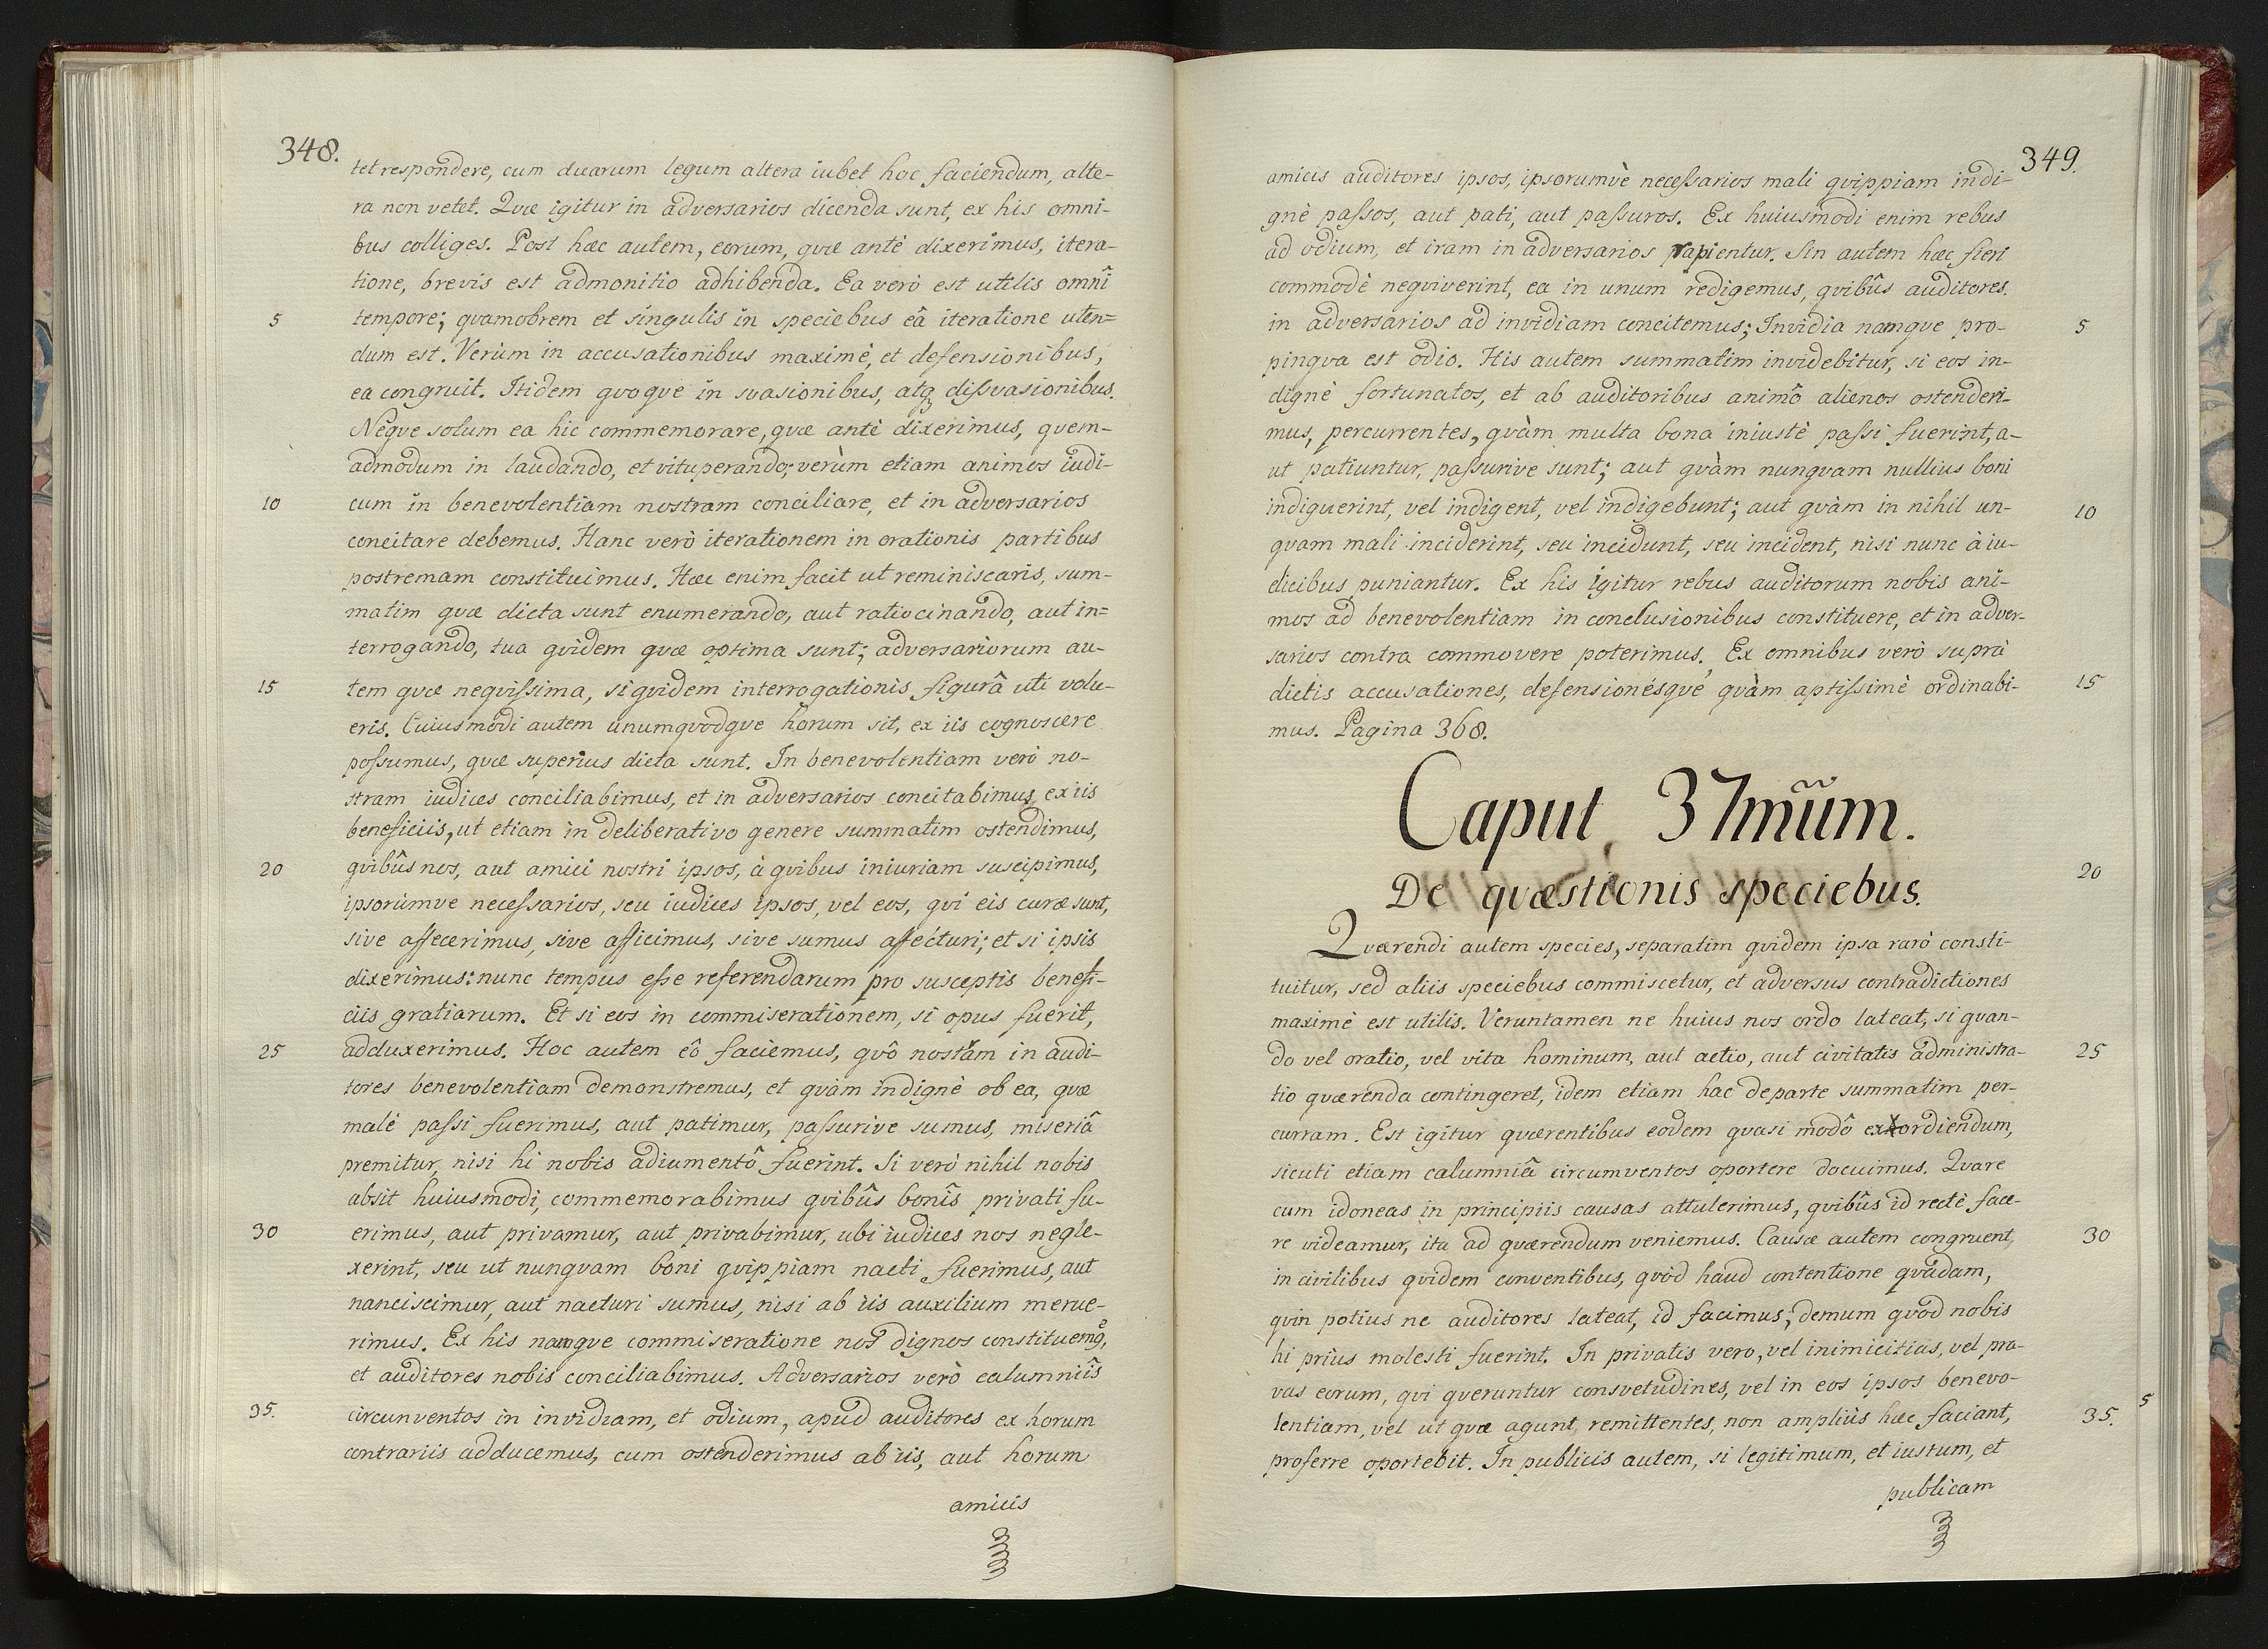 348.
tet respondere, cum duarum legum altera iubet hoc faciendum, alte-
ra non vetet. Qvæ igitur in adversarios dicenda sunt, ex his omni-
bus colliges. Post hæc autem, eorum, qvæ antè dixerimus, itera-
tione, brevis est admonitio adhibenda. Ea verò est utilis omnî
5 tempore; qvamobrem et singulis in speciebus eâ iteratione uten=
dum est. Verùm in accusationibus maximè, et defensionibus,
ea congruit. Itidem qvoqve in svasionibus, atqꝫ dissvasionibus.
Neqve solum ea hic commemorare, qvæ antè dixerimus, qvem-
admodum in laudando, et vituperando; verùm etiam animos iudi-
10 cum in benevolentiam nostram conciliare, et in adversarios
concitare debemus. Hanc verò iterationem in orationis partibus
postremam constituimus. Hæc enim facit ut reminiscaris, sum-
matim qvæ dicta sunt enumerando, aut ratiocinando, aut in=
terrogando, tua qvidem qvæ optima sunt; adversariorum au-
15 tem qvæ neqvissima, siqvidem interrogationis figurâ uti volu-
eris. Cuiusmodi autem unumqvodqve horum sit, ex iis cognoscere
possumus, qvæ superius dicta sunt. In benevolentiam verò no-
stram iudices conciliabimus, et in adversarios concitabimus, ex iis
beneficiis, ut etiam in deliberativo genere summatim ostendimus,
20 qvibûs nos, aut amici nostri ipsos, à qvibus iniuriam suscipimus,
ipsorùmve necessarios, seu iudices ipsos, vel eos, qvi eis curæ sunt,
sive affecerimus, sive afficimus, sive sumus affecturi; et si ipsis
dixerimus: nunc tempus esse referendarum pro susceptis benefi-
ciis gratiarum. Et si eos in commiserationem, si opus fuerit,
25 adduxerimus. Hoc autem eô faciemus, qvô nostram in audi-
tores benevolentiam demonstremus, et qvàm indignè ob ea, qvæ
malè passi fuerimus, aut patimur, passurive sumus, miseriâ
premitur, nisi hi nobis adiumentô fuerint. Si verò nihil nobis
absit huiusmodi, commemorabimus qvibûs bonîs privati fu-
30 erimus, aut privamur, aut privabimur, ubi iudices nos negle-
xerint, seu ut nunqvam boni qvippiam nacti fuerimus, aut
nanciscimur, aut nacturi sumus, nisi ab iis auxilium merue-
rimus. Ex his namqve commiseratione nos dignos constituemꝰ,
et auditores nobis conciliabimus. Adversarios verò calumniîs
35. circunventos in invidiam, et odium, apud auditores ex horum
contrariis adducemus, cum ostenderimus ab iis, aut horum
amicis
349.
amicis auditores ipsos, ipsorumvè necessarios mali qvippiam indi-
gnè passos, aut pati, aut passuros. Ex huiusmodi enim rebus
ad odium, et iram in adversarios rapientur. Sin autem hæc fieri
commodè neqviverint, ea in unum redigemus, qvibûs auditores
in adversarios ad invidiam concitemus; Invidia namqve pro- 5
pinqva est odio. His autem summatim invidebitur, si eos in-
dignè fortunatos, et ab auditoribus animô alienos ostenderi-
mus, percurrentes, qvàm multa bona iniustè passi fuerint, a-
ut patiuntur, passurive sunt; aut qvàm nunqvam nullius boni
indiguerint, vel indigent, vel indigebunt; aut qvàm in nihil un- 10
qvam mali inciderint, seu incidunt, seu incident, nisi nunc à iu-
dicibus puniantur. Ex his igitur rebus auditorum nobis ani-
mos ad benevolentiam in conclusionibus constituere, et in adver-
sarios contra commovere poterimus. Ex omnibus verò suprà
dictis accusationes, defensionésqve qvàm aptissimè ordinabi- 15
mus. Pagina 368.
Caput 37mũm.
De qvæstionis speciebus. 20
Qværendi autem species, separatim qvidem ipsa rarò consti-
tuitur, sed aliis speciebus commiscetur, et adversus contradictiones
maximè est utilis. Veruntamen ne huius nos ordo lateat, si qvan-
do vel oratio, vel vita hominum, aut actio, aut civitatis administra- 25
tio qværenda contingeret, idem etiam hac de parte summatim per-
curram. Est igitur qværentibus eodem qvasi modô exordiendum,
sicuti etiam calumniâ circumventos oportere docuimus. Qvare
cum idoneas in principiis causas attulerimus, qvibûs id rectè face-
re videamur, ita ad qværendum veniemus. Causæ autem congruent, 30
in civilibus qvidem conventibus, qvòd haud contentione qvâdam,
qvin potius ne auditores lateat, id facimus; demum qvòd nobis
hi priùs molesti fuerint. In privatis vero, vel inimicitias, vel pra-
vas eorum, qvi qveruntur consvetudines, vel in eos ipsos benevo- 5
lentiam, vel ut qvæ agunt, remittentes, non ampliùs hæc faciant, 35.
proferre oportebit. In publicis autem, si legitimum, et iustum, et
publicam